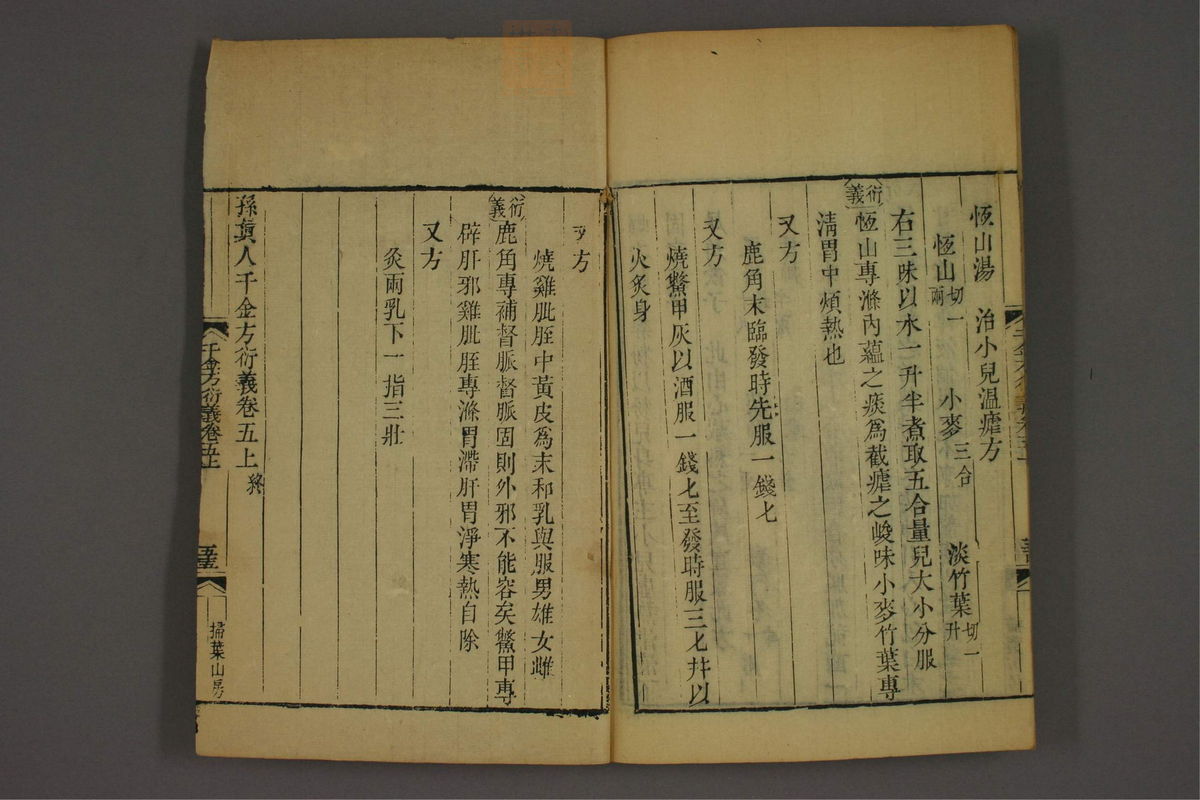 恆山湯　治小兒温瘧方
恆山切一兩　小麥三合　淡竹葉切一升
右三味以水一升半煮取五合量兒大小分服
衍義　恆山專滌內蘊之痰爲截瘧之峻味小麥竹葉專
清胃中煩熱也
又方
鹿角末臨發時先服一錢匕
又方
燒鱉甲灰以酒服一錢匕至發時服三匕幷以
火炙身
又方
燒雞肶胵中黃皮爲末和乳與服男雄女雌
衍義　鹿角專補督脈督脈固則外邪不能容矣鱉甲專
辟肝邪雞肶胵專滌胃滯肝胃淨寒熱自除
又方
灸兩乳下一指三壯
孫眞人千金方衍義卷五上終
千金方衍義卷五上
掃葉山房